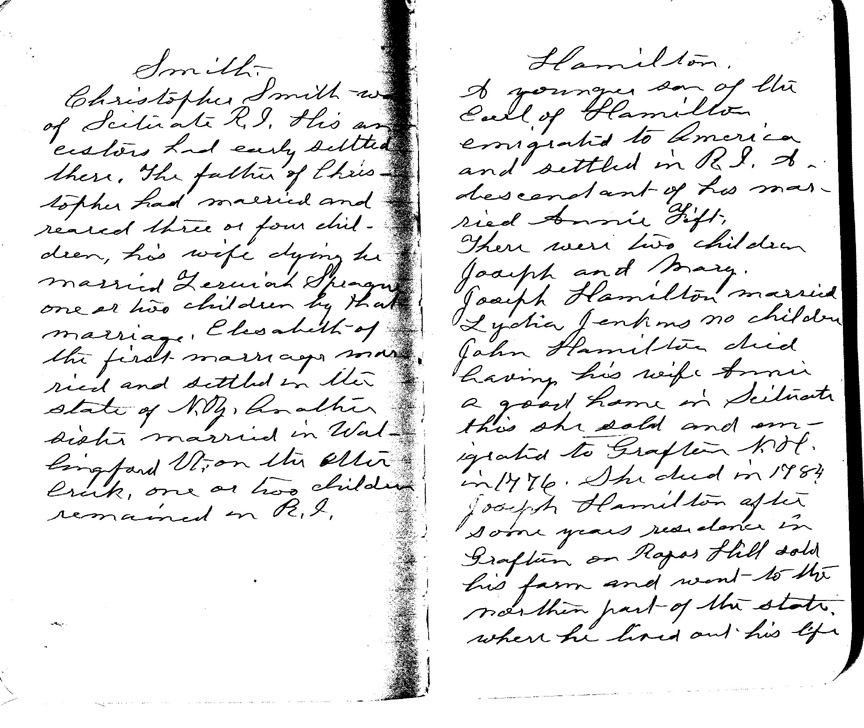 Smith.
Christopher Smith - w
of Scituate R.I. His an
cestors had early settled
there. The father of Chris-
topher had married and
reared three or four chil-
dren, his wife dying he
married Zeruiah Speague
one or two children by that
marriage. Elesabeth of
the first marriage mar
ried and settled in the
state of N.Y. Another
sister married in Wal-
lingford Vt, on the Otter
Crik, one or two children
remained in R.I.
Hamilton.
A younger son of the
Earl of Hamilton
emigrated to America
and settled in R.I. A
descendant of his mar-
ried Annie Fift.
There were two children
Joseph and Mary.
Joseph Hamilton married
Lydia Jenkins no children
John Hamilton died
having his wife Annie
a good home in Scituate
this she sold and em-
igrated to Grafton N.H.
in 1776. She died in 1784
Joseph Hamilton after
some years residence in
Grafton on Hill sold
his farm and went to the
northen part of the state,
where he lived out his life